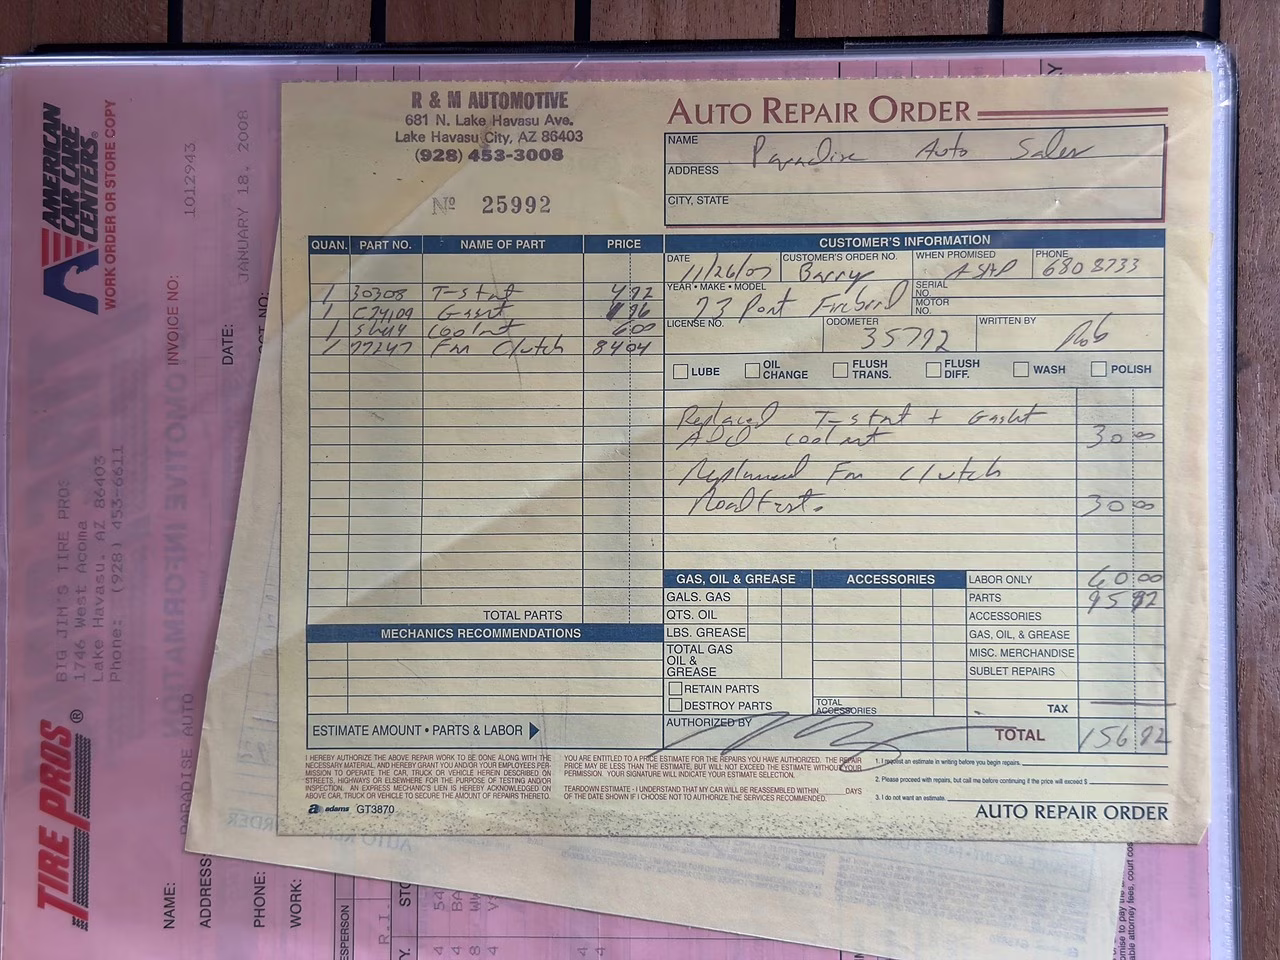 R & M AUTOMOTIVE
681 N. Lake Havasu Ave.
Lake Havasu City, AZ 86403
(928) 453-3008
Nº 25992
AUTO REPAIR ORDER
NAME Paradise Auto Sales
ADDRESS
CITY, STATE
QUAN. PART NO. NAME OF PART PRICE
1 30308 T-stat 4 92
1 Gasket 96
1 Coolant 6 00
1 Fan Clutch 84 04
TOTAL PARTS
MECHANICS RECOMMENDATIONS
ESTIMATE AMOUNT • PARTS & LABOR
CUSTOMER'S INFORMATION
DATE 11/26/07 CUSTOMER'S ORDER NO. Barry WHEN PROMISED ASAP PHONE 680 8733
YEAR • MAKE • MODEL 73 Pont Firebird SERIAL NO.
MOTOR NO.
LICENSE NO. ODOMETER 35792 WRITTEN BY Rob
LUBE OIL CHANGE FLUSH TRANS. FLUSH DIFF. WASH POLISH
Replaced T-stat + Gasket
ADD coolant 30 00
Replaced Fan Clutch
Road test. 30 00
GAS, OIL & GREASE ACCESSORIES LABOR ONLY 60 00
GALS. GAS PARTS 95 92
QTS. OIL ACCESSORIES
LBS. GREASE GAS, OIL, & GREASE
TOTAL GAS OIL & GREASE MISC. MERCHANDISE
SUBLET REPAIRS
RETAIN PARTS
DESTROY PARTS TOTAL ACCESSORIES TAX
AUTHORIZED BY TOTAL 156 92
I HEREBY AUTHORIZE THE ABOVE REPAIR WORK TO BE DONE ALONG WITH THE
NECESSARY MATERIAL, AND HEREBY GRANT YOU AND/OR YOUR EMPLOYEES PER-
MISSION TO OPERATE THE CAR, TRUCK OR VEHICLE HEREIN DESCRIBED ON
STREETS, HIGHWAYS OR ELSEWHERE FOR THE PURPOSE OF TESTING AND/OR
INSPECTION. AN EXPRESS MECHANIC'S LIEN IS HEREBY ACKNOWLEDGED ON
ABOVE CAR, TRUCK OR VEHICLE TO SECURE THE AMOUNT OF REPAIRS THERETO.
YOU ARE ENTITLED TO A PRICE ESTIMATE FOR THE REPAIRS YOU HAVE AUTHORIZED. THE REPAIR
PRICE MAY BE LESS THAN THE ESTIMATE, BUT WILL NOT EXCEED THE ESTIMATE WITHOUT YOUR
PERMISSION. YOUR SIGNATURE WILL INDICATE YOUR ESTIMATE SELECTION.
TEARDOWN ESTIMATE - I UNDERSTAND THAT MY CAR WILL BE REASSEMBLED WITHIN DAYS
OF THE DATE SHOWN IF I CHOOSE NOT TO AUTHORIZE THE SERVICES RECOMMENDED.
1. I request an estimate in writing before you begin repairs.
2. Please proceed with repairs, but call me before continuing if the price will exceed $
3. I do not want an estimate.
adams GT3870
AUTO REPAIR ORDER
AMERICAN
CAR CARE
CENTERS®
WORK ORDER OR STORE COPY
1012943
INVOICE NO:
JANUARY 18, 2008
DATE:
BIG JIM'S TIRE PROS
1746 West Acoma
Lake Havasu, AZ 86403
Phone: (928) 453-6611
TIRE PROS®
PARADISE AUTO
NAME:
ADDRESS
PHONE:
WORK: